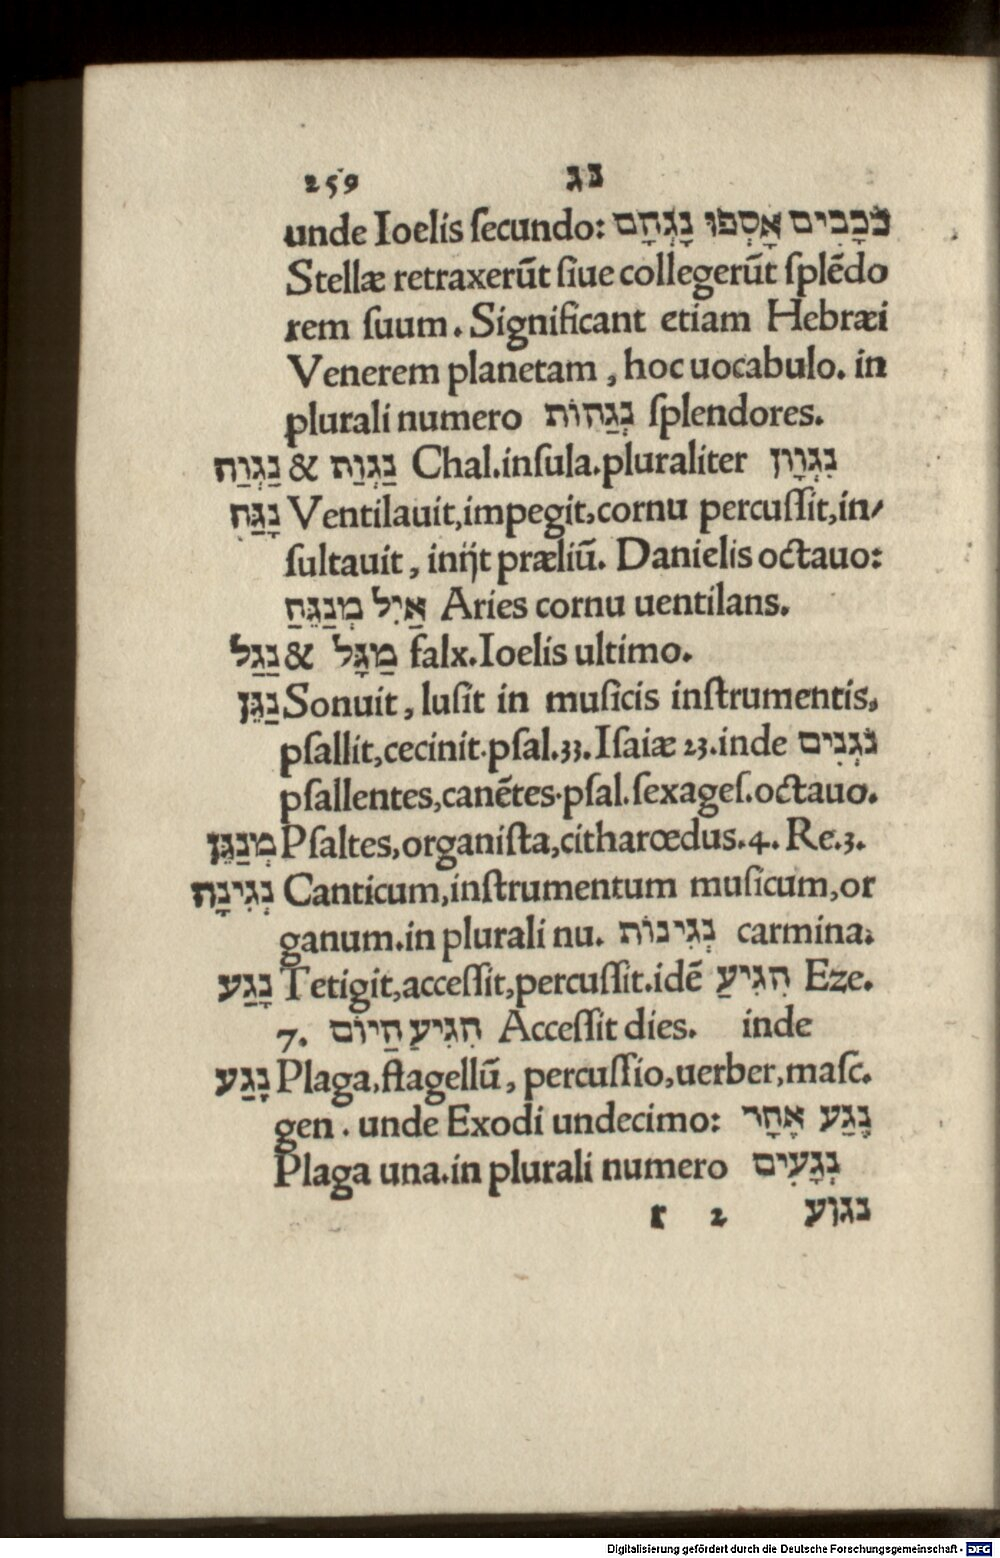 259 נג
unde Ioelis ſecundo: כֹּכָבִים אָסְפוּ נָגְהָם
Stellæ retraxerūt ſiue collegerūt ſplēdo
rem ſuum. Significant etiam Hebræi
Venerem planetam, hoc uocabulo. in
plurali numero נְגָהוֹת ſplendores.
נַגְוַה & נַגְוַת Chal.inſula.pluraliter נִגְוָן
נָגַח Ventilauit,impegit,cornu percuſſit,in/
ſultauit, inijt præliū. Danielis octauo:
אַיִל מְנַגֵּחַ Aries cornu uentilans.
נַגַל & מַגָּל falx.Ioelis ultimo.
נַגֵּן Sonuit, luſit in muſicis inſtrumentis,
pſallit,cecinit.pſal.33.Iſaiæ 23.inde נֹגְנִים
pſallentes,canētes.pſal.ſexageſ.octauo.
מְנַגֵּן Pſaltes,organiſta,citharœdus.4.Re.3.
נְגִינָה Canticum,inſtrumentum muſicum,or
ganum.in plurali nu. נְגִינוֹת carmina.
נָגַע Tetigit,acceſſit,percuſſit.idē הִגִּיעַ Eze.
7. הִגִּיעַ הַיּוֹם Acceſſit dies. inde
נֶגַע Plaga,flagellū, percuſſio,uerber,maſc.
gen. unde Exodi undecimo: נֶגַע אֶחָד
Plaga una.in plurali numero נְגָעִים
r 2 נגוע
Digitalisierung gefördert durch die Deutsche Forschungsgemeinschaft - DFG